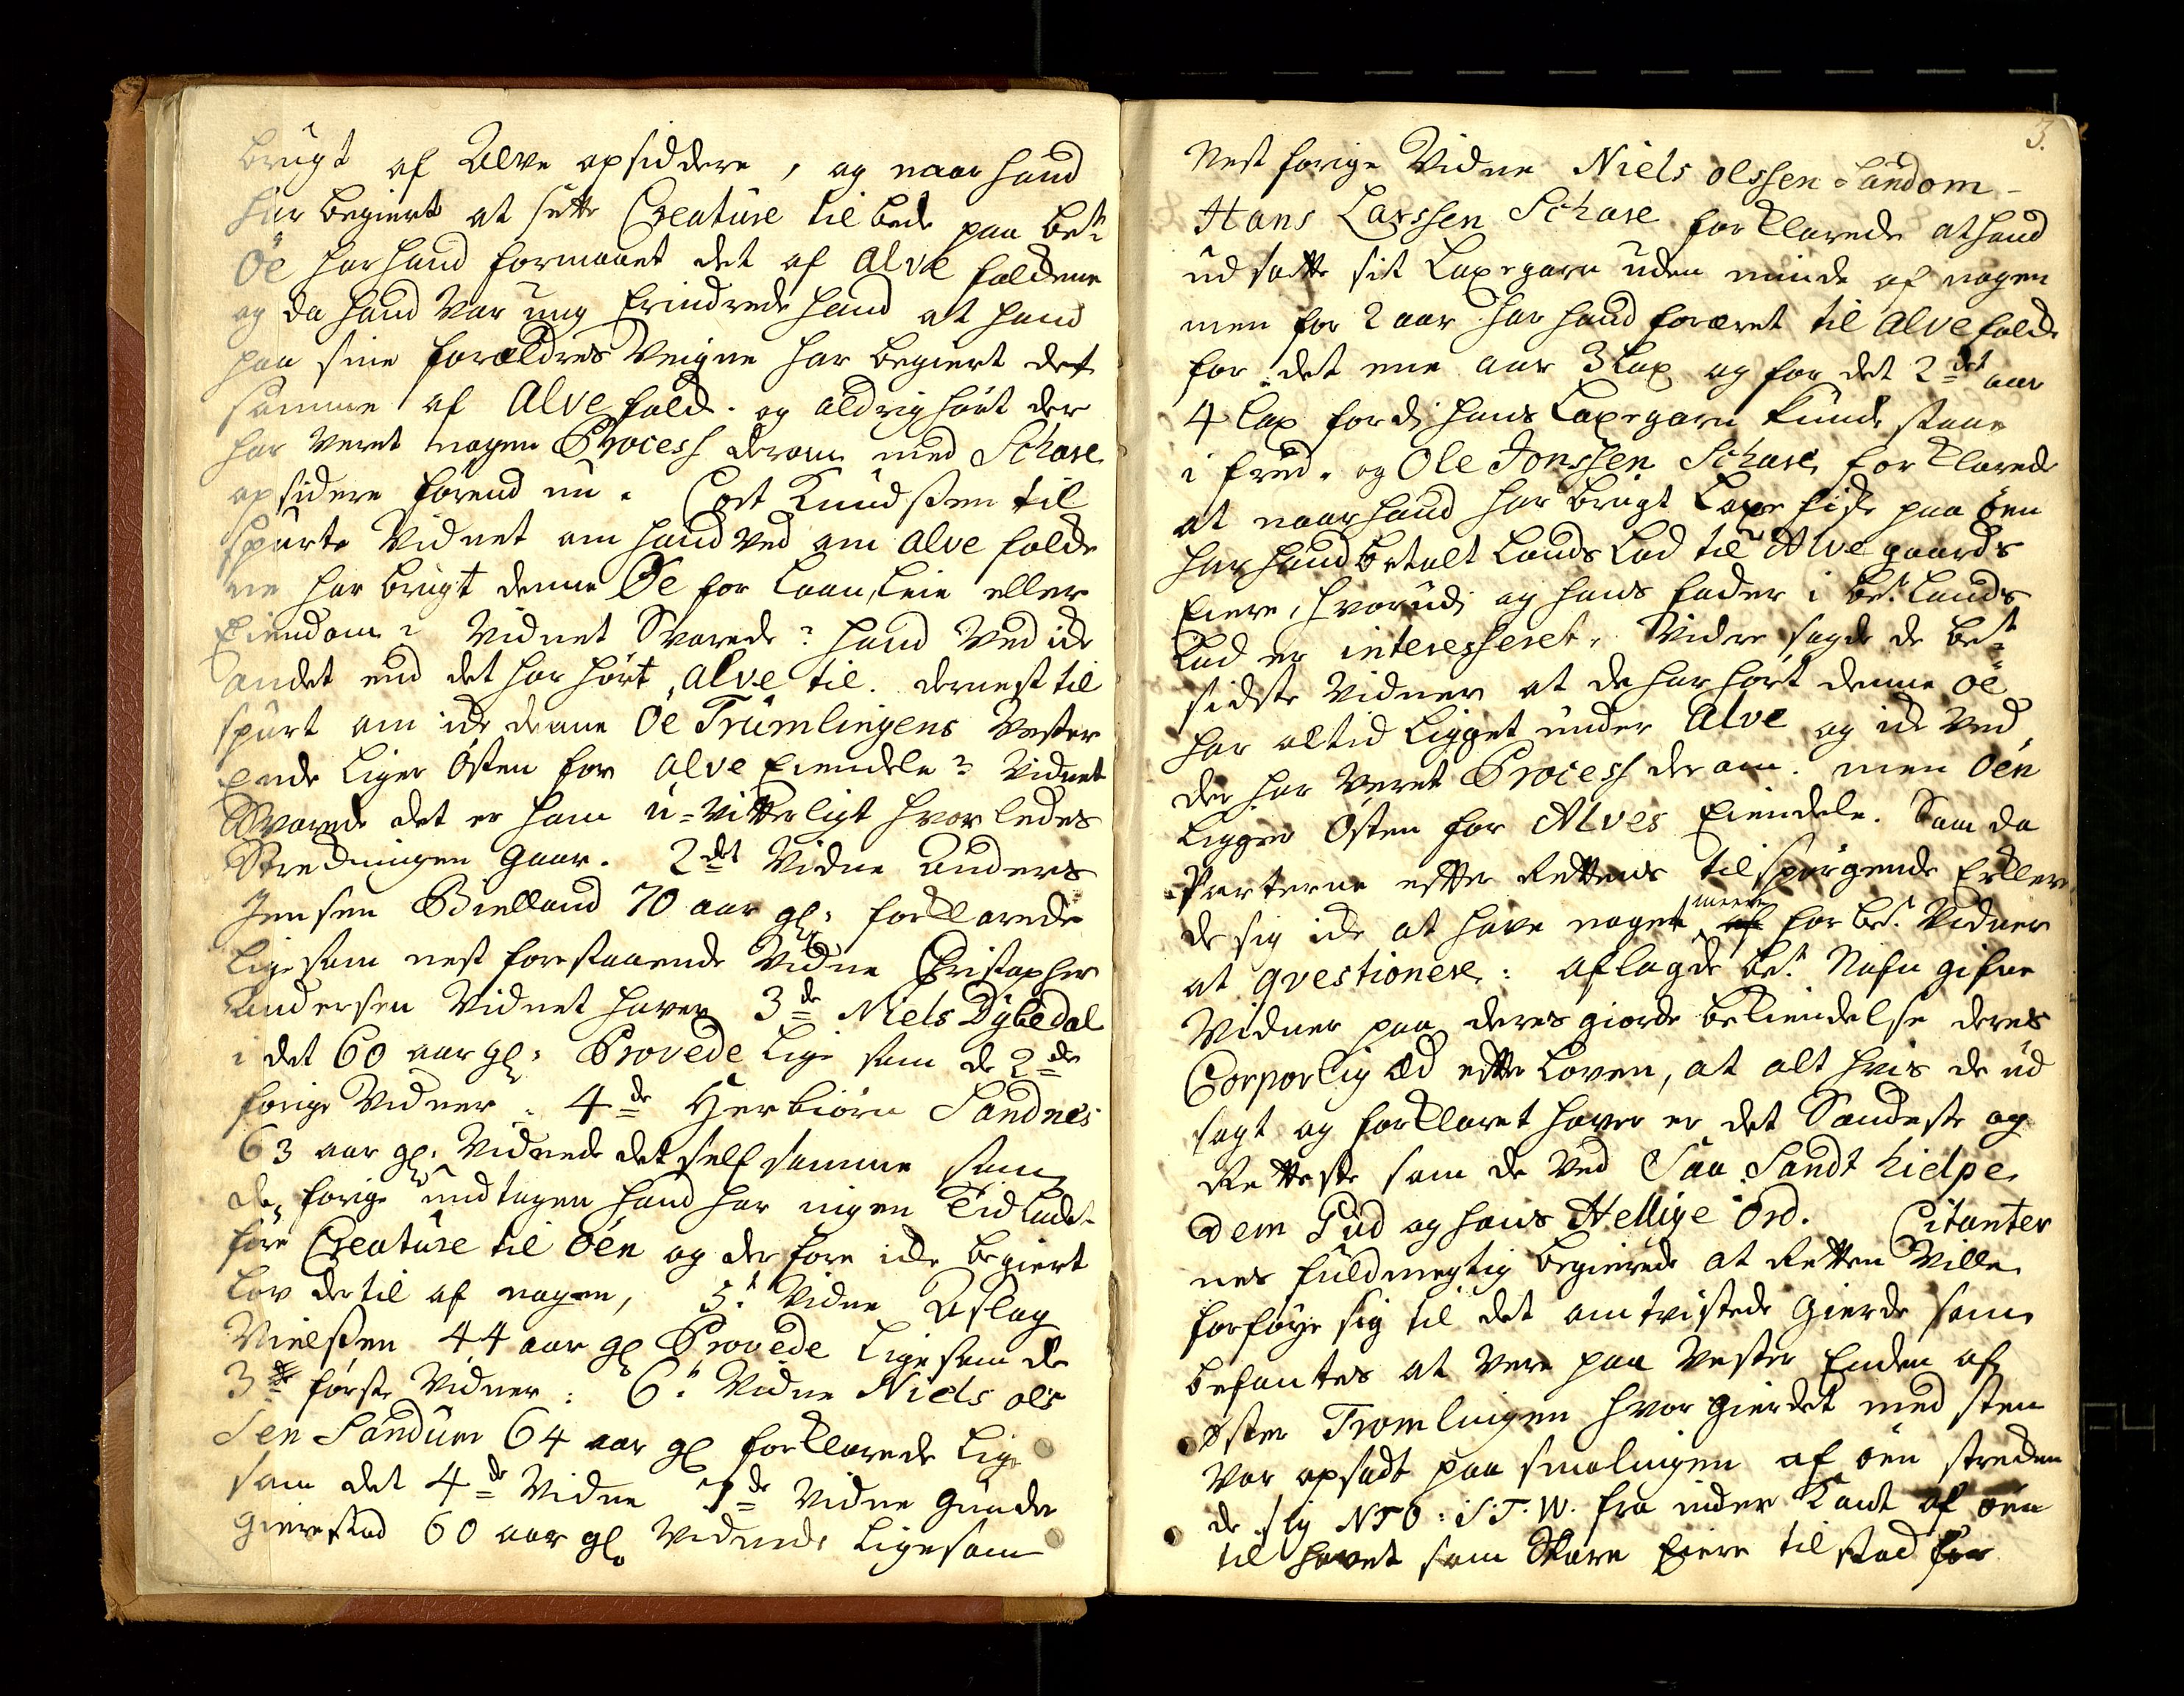 brugt af Alve opsiddere, og naar hand
har begiert at sette Creature til bede paa bete
Öe har hand formaaet det af Alve foldene
og da hand var ung Erindrede hand at hand
paa sine forældres Veigne har begiert det
samme af Alve fold. og aldrig hört der
har veret nogen Process derom med Schare
opsidere förend nu. Cort Knudssen til
spurte Vidnet om hand ved om Alve folde
ne har brugt denne Öe for laan, leie eller
Eiendom? Vidnet Svarede: hand Ved icke
andet end det har hört Alve til. dernest til
spurt om icke denne Öe Trumlingens Vester
Ende liger Östen for Alve Eiendele? Vidnet
Svarede det er ham u-vitterligt hvorledes
Strechningen gaar. 2det Vidne Anders
Jensen Bielland 70 aar gl: forklarede
lige som nest forestaaende Vidne Christopher
Andersen Vidnet haver 3de Niels Dybedal
i det 60 aar gl: Provede lige som de 2de
forige Vidner: 4de Herbiörn Sandnes
63 aar gl: Vidnede det self samme som
de forige undtagen hand har ingen Tid ladet
före Creature til Öen og derfore icke begiert
lov dertil af nogen, 5t Vidne Aslag
Nielssen 44 aar gl Provede lige som de
3de förste Vidner: 6t Vidne Niels ols
sen Sandum 64 aar gl forklarede lige
som det 4de Vidne 7de Vidne Gunde
Gierestad 60 aar gl. Vidnede ligesom
3.
Nest forige Vidne Niels olssen Sandom -
Hans Larssen Schare forklarede at hand
udsatte sit Laxegarn uden minde af nogen
men for 2 aar har hand foræret til Alve folde
for det ene aar 3 lax og for det 2det aar
4 lax fordi hans Laxegarn kunde staae
i fred. og Ole Jonssen Schare forklarede
at naar hand har brugt Laxe fiske paa Öen
har hand betalt Lands Lod til Alve gaards
Eiere, hvorudi og hans fader i bete Lands
Lod er interesseret. Videre sagde de bete
sidste Vidner at de har hört denne Öe
har altid ligget under Alve og icke Ved
der har Veret Process derom. men Öen
ligger Östen for Alves Eiendele. Som da
Parterne efter Rettens tilspörgende Erklere
de sig icke at have noget meere for bete Vidner
at qvestionere: aflagde bete Nafn gifne
Vidner paa deres giorde bekiendelse deres
Corporlig Æd efter Loven, at alt hvis de ud
sagt og forklaret haver er det Sandeste og
Retteste som de Ved Saa Sandt hielpe
dem Gud og hans Hellige Ord. Citanter
nes fuldmegtig begierede at Retten Ville
forföye sig til det omtvistede Gierde som
befantes at Vere paa Vester Enden af
Öster Tromlingen hvor gierdet med sten
var opsadt paa smalingen af Öen strechen
de sig NTO: STW. fra inder Kant af Öen
til havet som Skare Eiere tilstod for